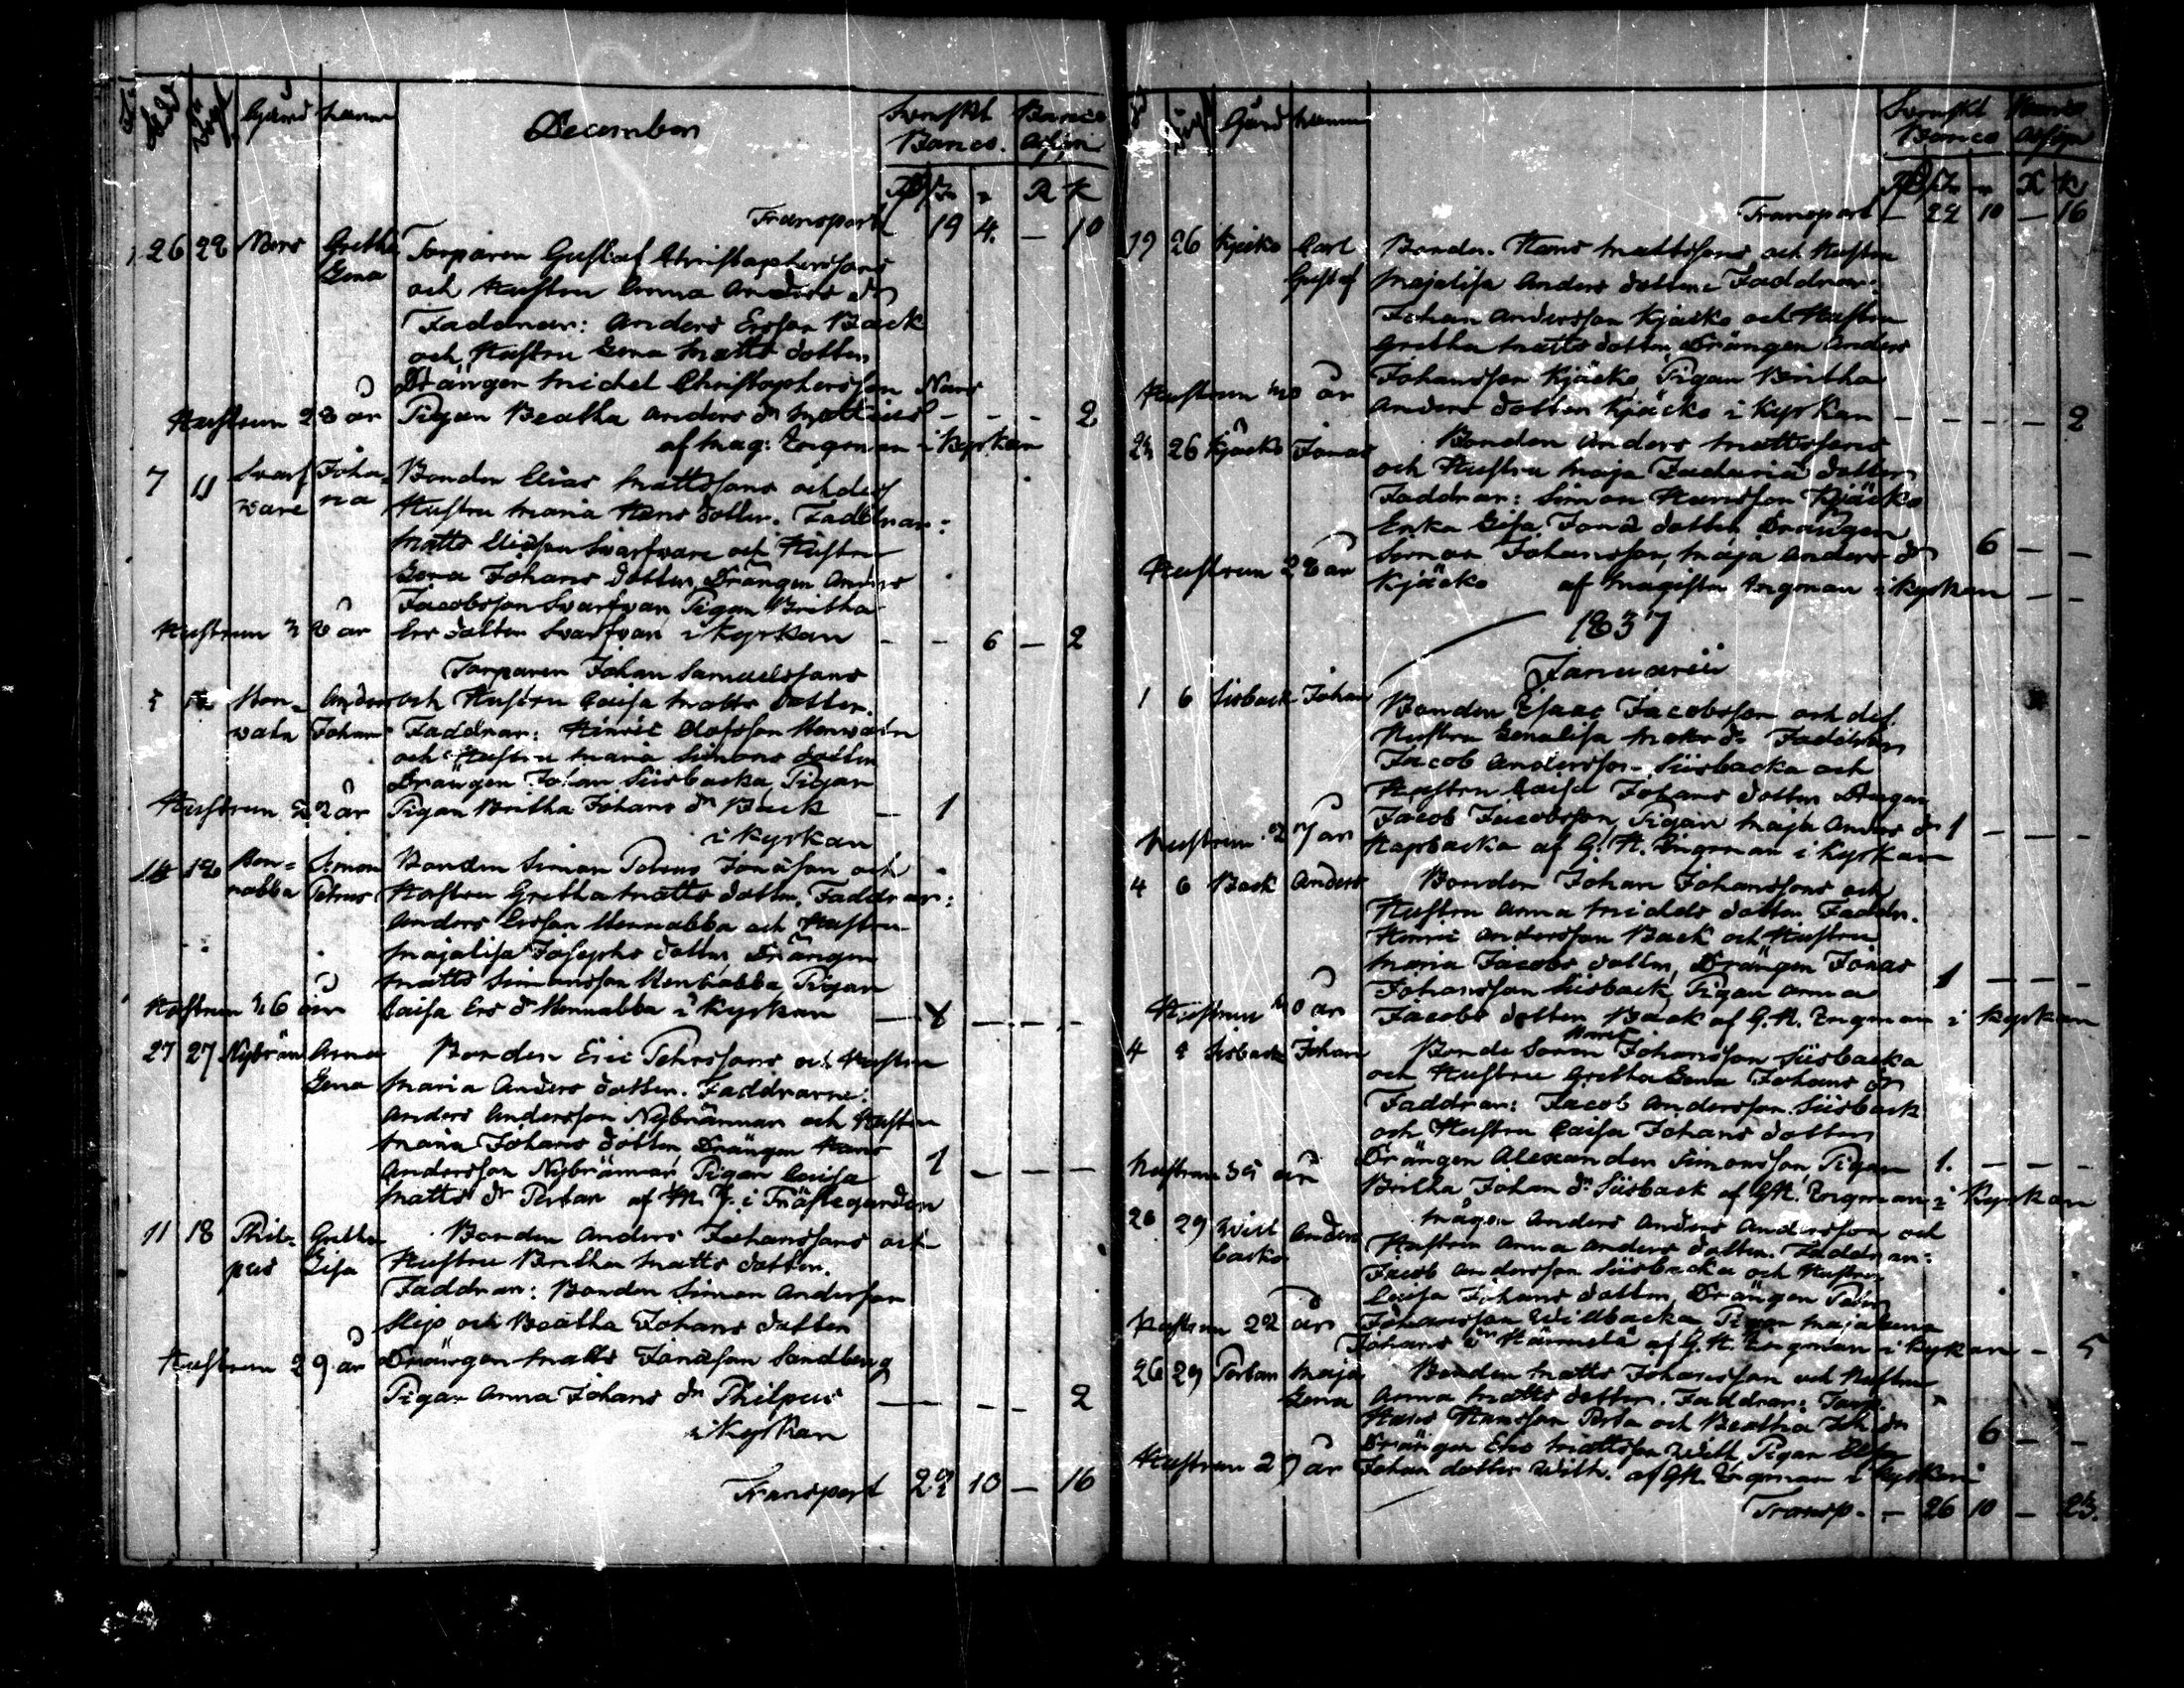 Gård namn December Svenskt Banco Banco Assign
R k
Transport 19 4. — 10
26 28 Nars Gretha Torparen Gustaf Christophersons
Lena och Hustru Anna Anders dr
Faddrar: Anders Ersson Back
och Hustru Lena Matts dotter
Drängen Michel Christophersson Nars
Hustrun 28 år Pigan Beatha Anders dr - - - 2
af Mag: Engman i Kyrkan
7 11 Svarf Joha= Bonden Elias Mattssons och dess
vare na Hustru Maria Hans dotter. Faddrar:
Matts Eliasson Svarfvare och Hustru
Lena Johans dotter, Drängen Anders
Jacobsson Svarfvar, Pigan Britha
Hustrun år Ers dotter Svarfvar i Kyrkan - - 6 — 2
Torparen Johan Samuelssons
Anders och Hustru Caisa Matts dotter.
Johan Faddrar: Hinric Olofsson
och Hustru Maria Simons dotter
Drängen Johan Siisbacka, Pigan
Hustrun 22 år Pigan Britha Johans dr Back — 1
i Kyrkan
14 18 Simon Bonden Simon Petrus Jonasson och
nabba Petrus Hustru Gretha Matts dotter, Faddrar:
Anders Ersson och Hustru
Majalisa Josephs dotter, Drängen
Matts Simonsson Pigan
Hustrun 36 år Caisa Ers dr i Kyrkan — 1 — — -
27 27 Nybrän Anna Bonden Eric Pehrssons och Hustru
Lena Maria Anders dotter. Faddrarne:
Anders Andersson Nybrännar och Hustru
Maria Johans dotter, Drängen Hans
Andersson Nybrännar Pigan Caisa 1 — — —
Matts dr Portan af i Prästegården
11 18 Phil= Gretha Bonden Anders Johanssons och
pus Lisa Hustru Britha Matts dotter.
Faddrar: Bonden Simon Andersson
Slejs och Beatha Johans dotter
Hustrun 29 år Drängen Matts Jonasson Sandberg
Pigan Anna Johans dr Philpus — - - 2
i Kyrkan
Transport 22 10 — 16
Gård namn Svenskt Banco Banco Assign
Transport — 22 10 — 16
19 26 Kjäcko Carl Bonden Hans Mattssons och Hustru
Gustaf Majalisa Anders dotter Faddrar:
Johan Andersson Kjäcko och Hustru
Gretha Matts dotter, Drängen Anders
Johansson Kjäcko, Pigan Britha
Hustrun år Anders dotter Kjäcko i Kyrkan - - - - 2
26 Kjäcko Jonas Bonden Anders Mattssons
och Hustru Maja Zacharia dotter
Faddrar: Simon Hansson Kjäcko
Erika Lisa Jona dotter, Drängen
Simon Johansson, Maja Anders dr 6 — —
Hustrun 28 år Kjäcko af Magister Engman i Kyrkan
1837
Januarii
1 6 Sisback Johan Bonden Isaac Jacobsson och des
Hustru Lenalisa Mats dr Faddrar
Jacob Andersson Siisbacka och
Hustru Caisa Johans dotter Drängen
Jacob Jacobsson, Pigan Maja Anders dr 1 — — -
Hustrun 27 år af G. H. Engman i Kyrkan
4 6 Back Anders Bonden Johan Johanssons och
Hustru Anna Michels dotter Faddr.
Hinric Andersson Back och Hustru
Maria Jacobs dotter, Drängen Jonas 1 — — -
Johansson Siisback, Pigan Anna
Hustrun år Jacobs dotter Back af G. H. Engman i Kyrkan
4 Sisback Johan Bonde Soren Johansson Siisbacka
och Hustru Gretha Lena Johans dr
Faddrar: Jacob Andersson Siisback
och Hustru Caisa Johans dotter
Drängen Alexander Simonsson, Pigan 1. — — -
Hustrun 35 år Britha Johan dr Siisback af G.H. Engman i Kyrkan
26 29 Will Anders Mågen Anders Anders Andersson och
backa Hustrun Anna Anders dotter. Faddrar:
Jacob Andersson Siisbacka och Hustru
Caisa Johans dotter, Drängen
Hustrun 22 år Johansson Willbacka Pigan Majalena
Johans dr af G. H. Engman i Kyrkan - 5
26 29 Portan Maja Bonden Matts Johansson och Hustru
Lena Anna Matts dotter. Faddrar: Torp.
Hans Hansson och Beatha Joh dr 6 — -
Drängen Eric Mattsson Pigan
Hustrun 27 år Johan dotter af G.H. Engman i Kyrkan
Transp. — 26 10 — 23.